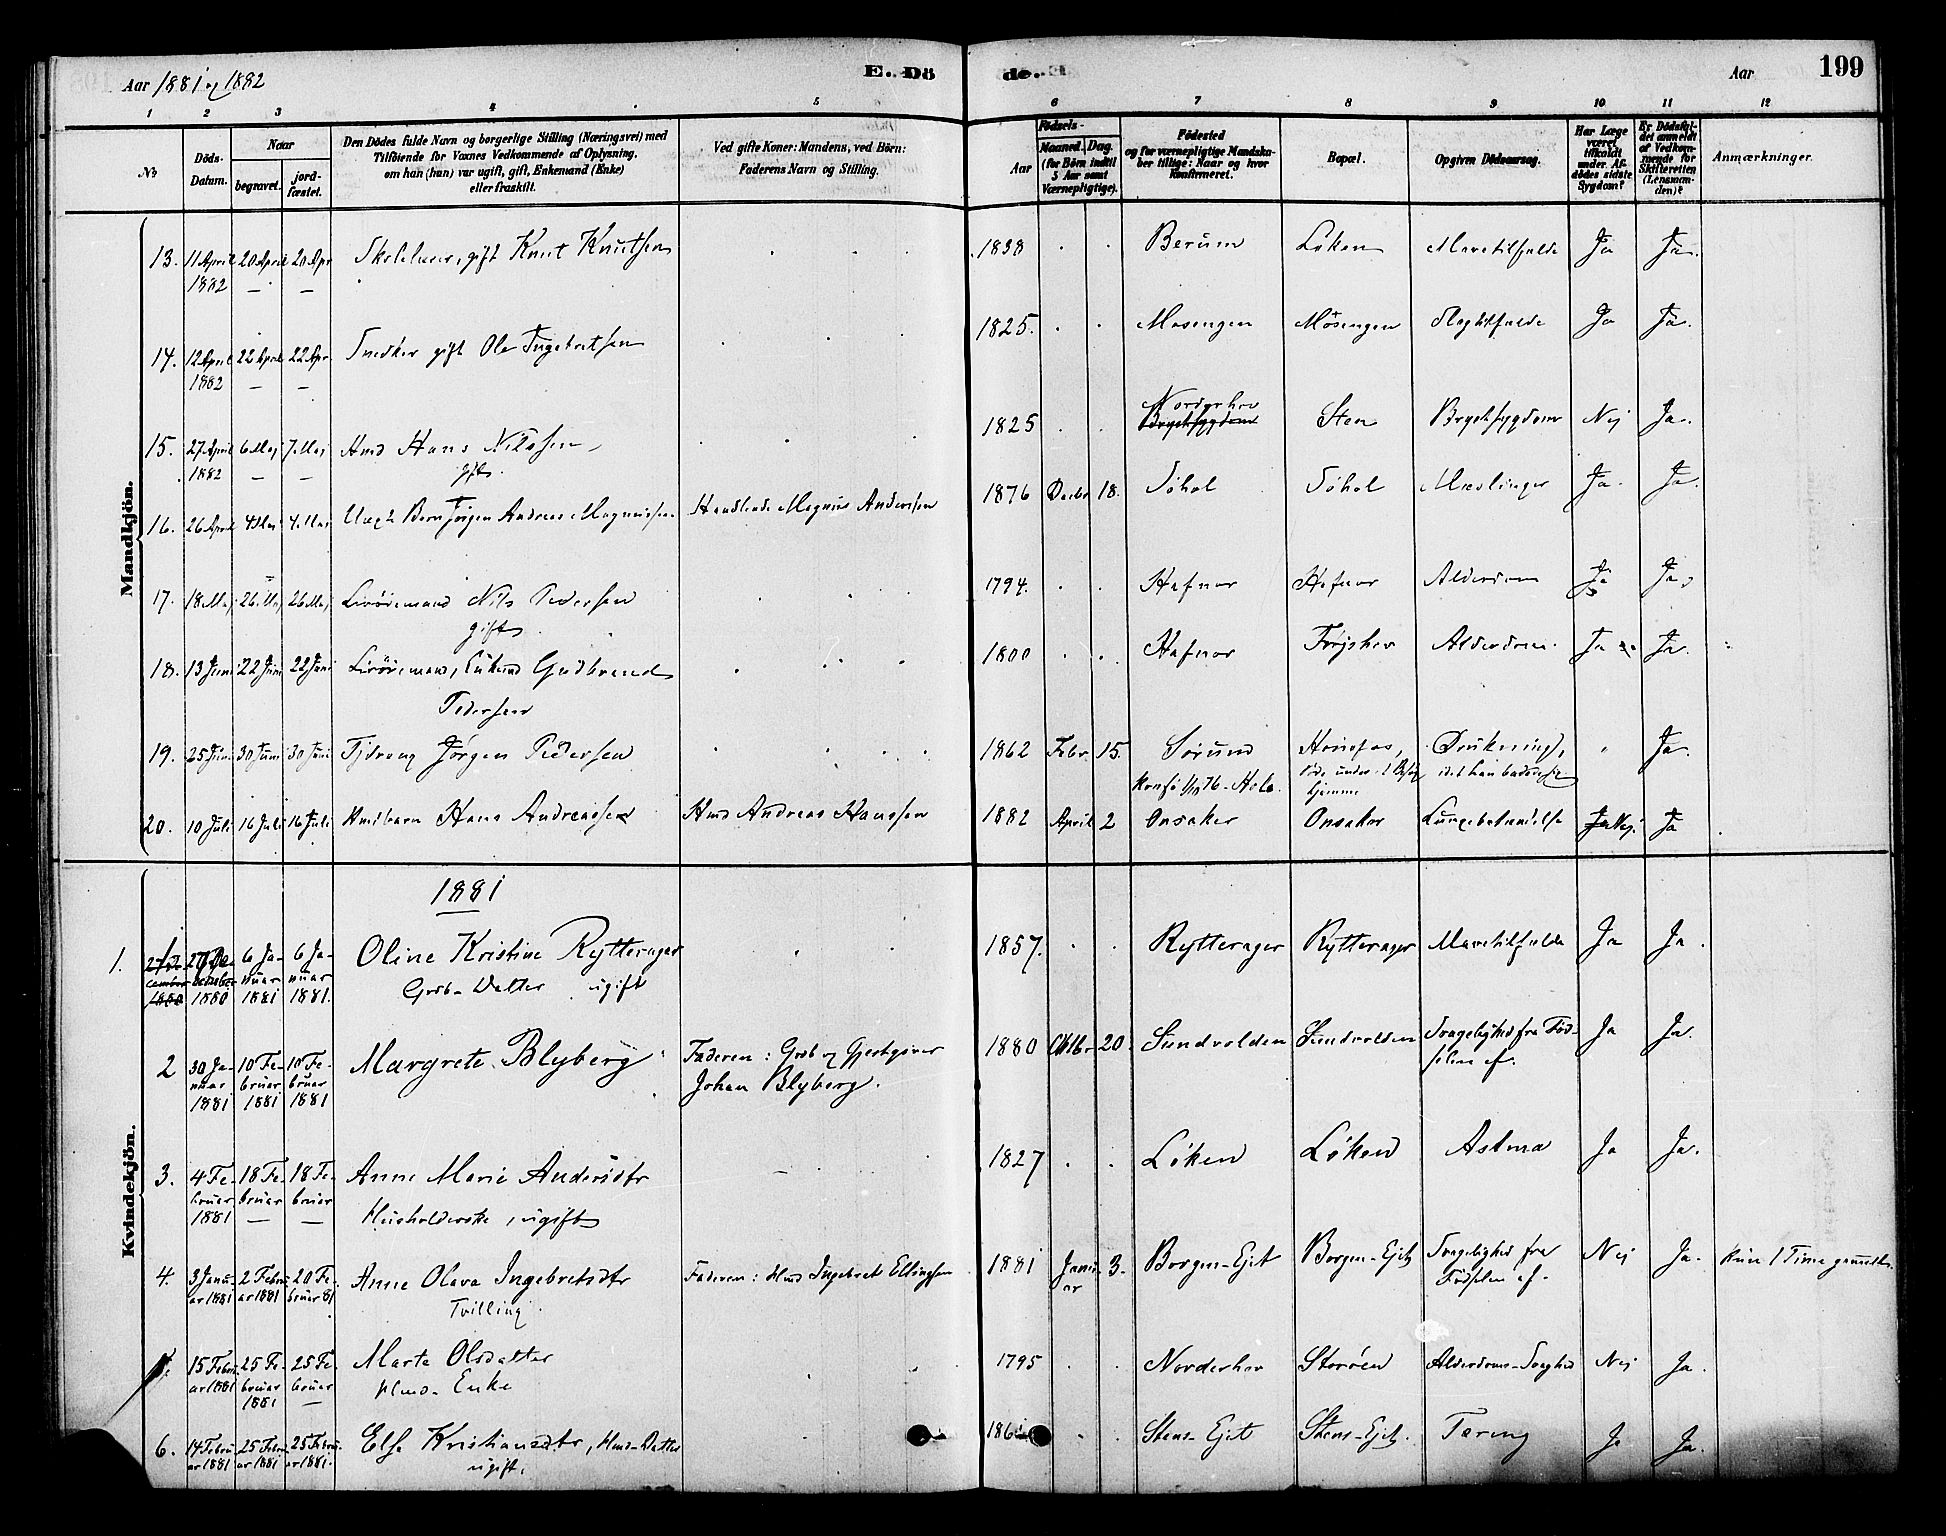 Aar 1881 og 1882
E. Dö
de.
Aar
199
1 2 3 4 5 6 7 8 9 10 11 12
No
Döds-Datum.
Naar
begravet.
jord-fæstet.
Den Dödes fulde Navn og borgerlige Stilling (Næringsvei) med
Tilföiende for Voxnes Vedkommende af Oplysning,
om han (hun) var ugift, gift, Enkemand (Enke)
eller fraskilt.
Ved gifte Koner: Mandens, ved Börn:
Faderens Navn og Stilling.
Födsels-
Aar
Maaned. Dag.
(for Börn indtil
5 Aar samt
Værnepligtige).
Födested
og for værnepligtige Mandska-
ber tillige: Naar og hvor
konfirmeret.
Bopæl.
Opgiven Dödsaarsag.
Har Læge
været
tilkaldt
under Af-
dödes sidste
Sygdom?
Er Dödsfal-
det anmeldt
af Vedkom-
mende for
Skifteretten
(Lensman-
den)?
Anmærkninger.
Mandkjön.
13. 11 April 1882 20 April 20 Apr Skolelærer, gift Knut Knutsen 1838 Berum Løken Mavetilfælde Ja Ja.
14. 12 April 1882 22 April 22 Apr Snedker gift Ole Ingebretsen 1825. Mosengen Mosengen Slagtilfælde Ja Ja.
15. 27 April 1882 6 Maj 7. Maj Hmd Hans Nilssen gift. 1825 Norderhov Brystsygdom Sten Brystsygdom Nej Ja.
16. 26 April 4 Mai 4. Mai Barn Jørgen Andreas Magnussen Magnus Anderssen 1876 Decbr 18. Søhol Søhol Meslinger Ja. Ja.
17. 18 Maj 26. Maj 26 Maj Livøremand Nils Pedersen gift 1794. Hafnor Hafnor Alderdom Ja Ja.
18. 13 Juni 22 Juni 22 Juni Livøremand, Enkemd Gudbrand Pedersen 1800 Hafnor Alderdom. Ja Ja.
19. 25 Juni 30 Juni 30 Juni Tjdreng Jørgen Pedersen 1862 Febr 15. Sørum Konf. 1/10 76 - Hole. Hønefos, Døde under et Besøg hjemme Drukning, idet han badede sig Ja.
20. 10 Juli 16 Juli 16 Juli Hmdbarn Hans Andreassen Hmd Andreas Hanssen 1882 April 2 Onsaker Onsaker Lungebetændelse Ja Nej. Ja
1881
Kvindekjön.
1. 27 December 1880 6 Januar 1881 6 Januar 1881. Oline Kristine Rytterager Grdb-Datter ugift 1857. Rytterager Rytterager Mavetilfælde Ja Ja.
2 30 Januar 1881 10 Februar 1881 10 Februar 1881 Margrete Blyberg Faderen: Grdb og Gjestgiver Johan Blyberg. 1880 Oktbr 20. Sundvolden Sundvolden Svagelighed fra Fødselen af. Ja Ja.
3. 4 Februar 1881 18 Februar 18 Februar Anne Marie Andersdtr Husholderske, ugift 1827 Løken Løken Astma Ja Ja.
4. 3 Januar 1881 2 Februar 1881 20 Februar 81 Anne Olava Ingebretsdtr Tvilling. Faderen: Hmd Ingebret Ellingsen 1881 Januar 3. Borgen-Ejet Borgen-Ejet Svagelighed fra Fødselen af. Nej Ja. Kun 1 Time gammelt.
15 Februar 1881 25 Februar 1881 25 Februar Marte Olsdatter Hmds-Enke 1795 Norderhov Storøen Alderdoms-Svaghed Nej Ja.
6. 14 Februar 1881 25 Februar 1881 25 Februar 1881. Else Kristiansdtr, Hmds-Datter ugift. 186 Stens-Ejet Stens-Ejet. Tæring Ja Ja.